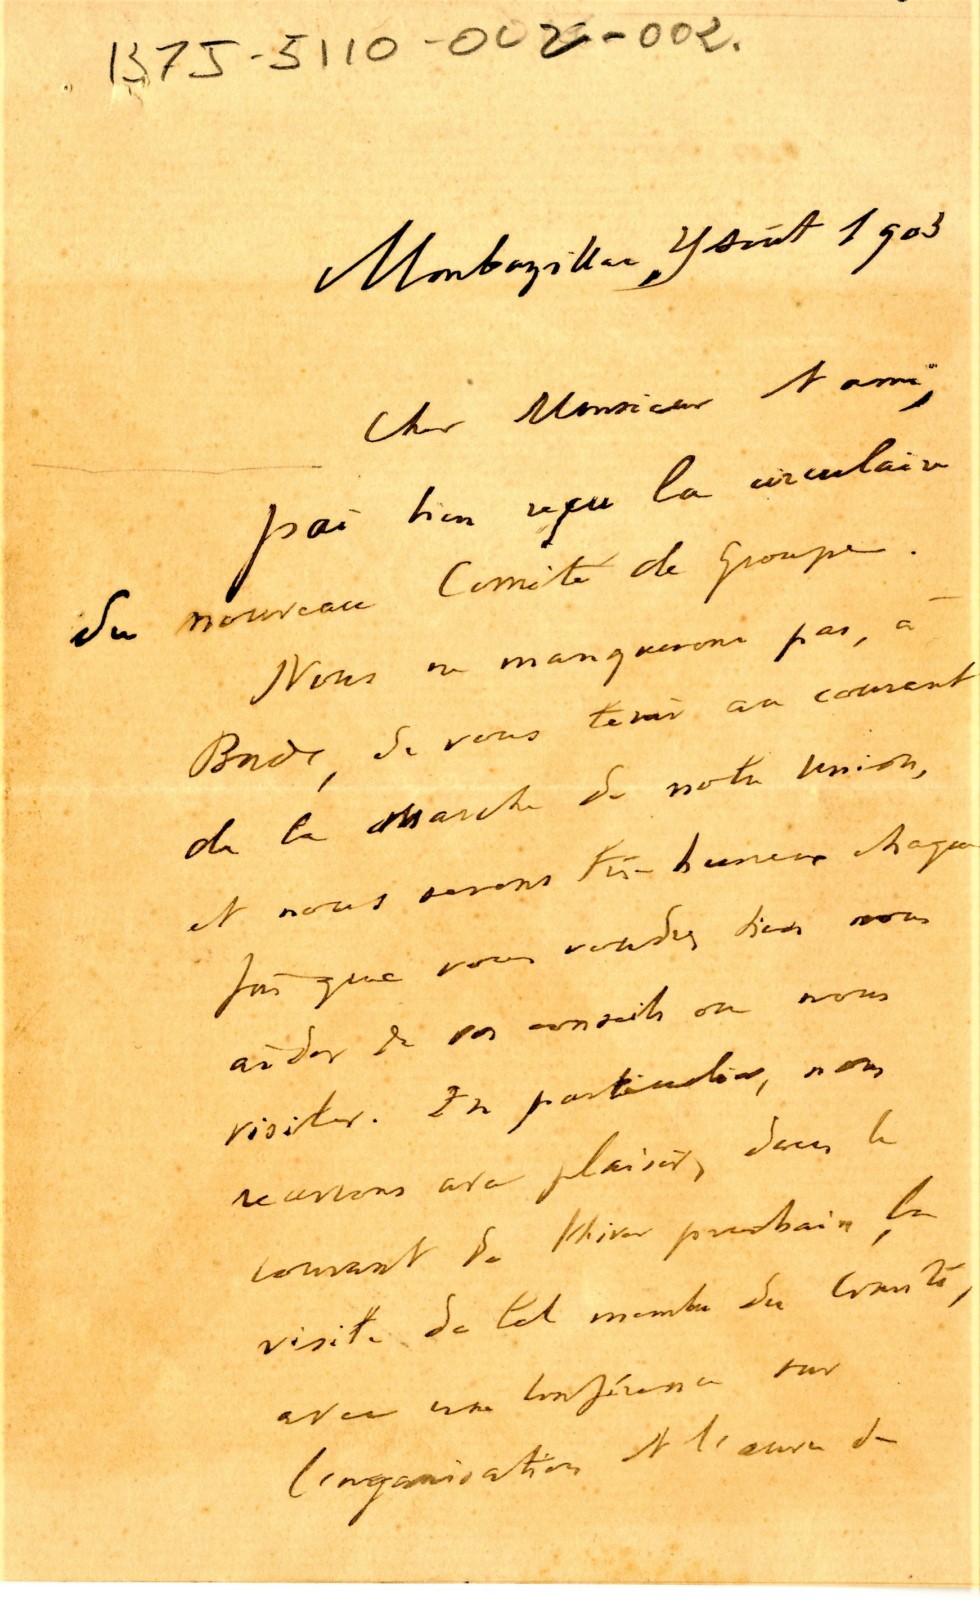 1375-5110-002-002.
Monbazillac, 7 Août 1903
Cher Monsieur et ami,
J'ai bien reçu la circulaire
du nouveau Comité de Groupe.
Nous ne manquerons pas, à
de vous tenir au courant
de la marche de notre Union,
et nous serons très heureux chaque
fois que vous voudrez bien nous
aider de vos conseils ou nous
visiter. En particulier, nous
recevrons avec plaisir, dans le
courant de l'hiver prochain, la
visite de tel membre du Comité,
avec une conférence sur
l'organisation et l'œuvre de